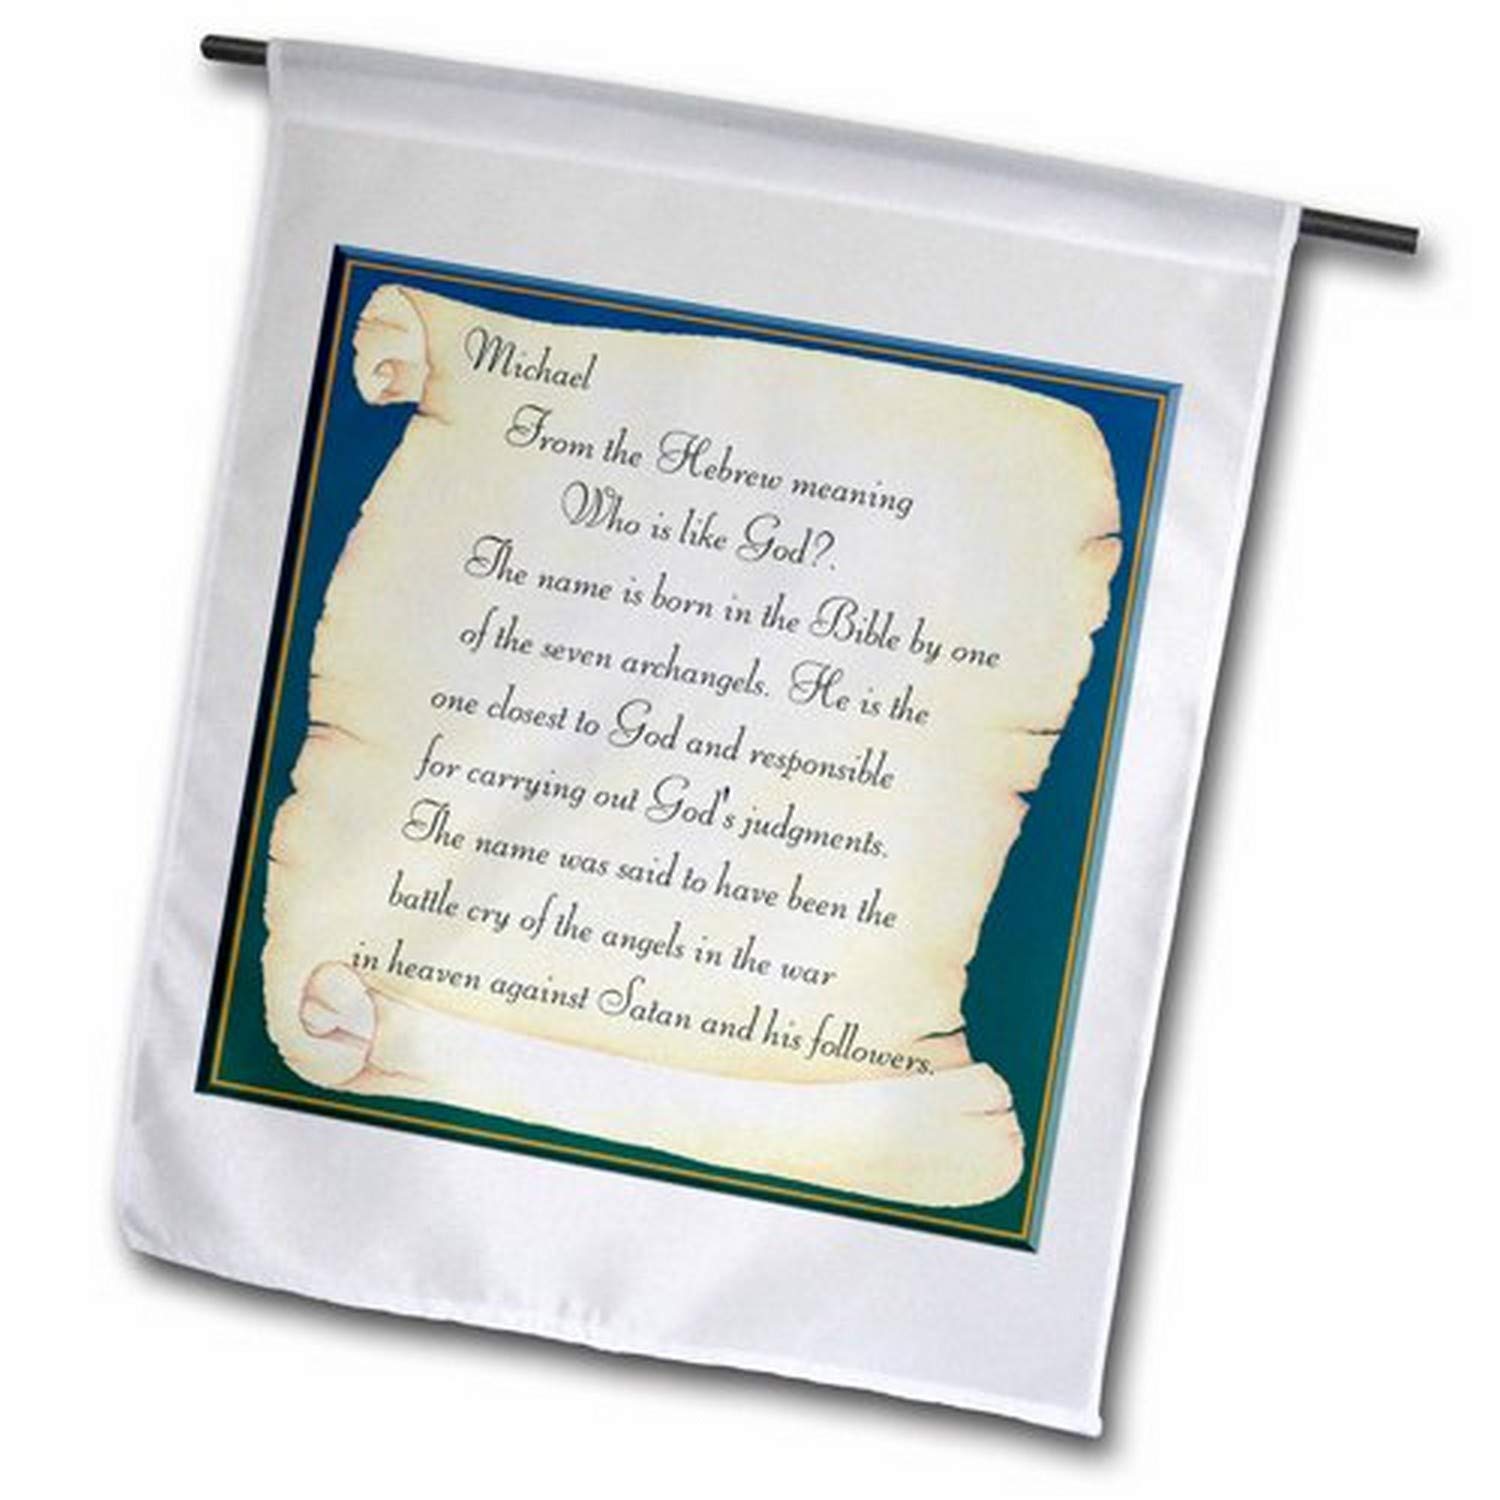 Michael
From the Hebrew meaning
Who is like God?.
The name is born in the Bible by one
of the seven archangels. He is the
one closest to God and responsible
for carrying out God's judgments.
The name was said to have been the
battle cry of the angels in the war
in heaven against Satan and his followers.